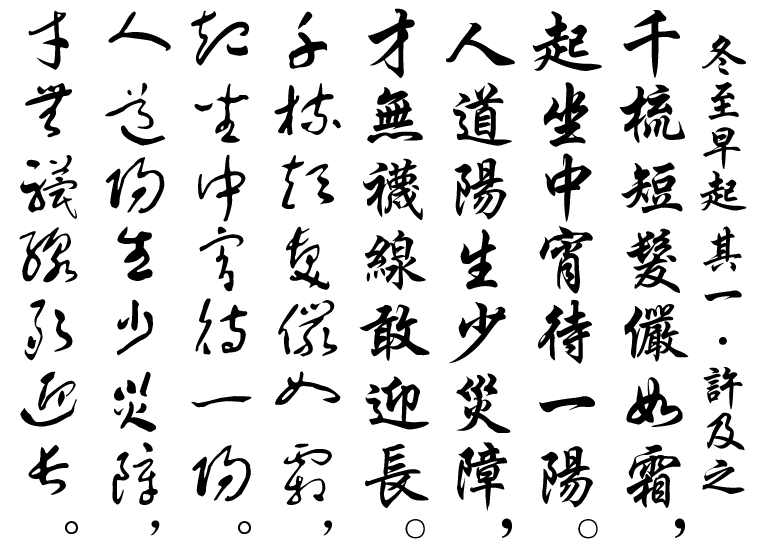 冬至早起 其一・許及之
千梳短髮儼如霜，
起坐中宵待一陽。
人道陽生少災障，
才無襪線敢迎長。
千梳短髮儼如霜，
起坐中宵待一陽。
人道陽生少災障，
才無襪線敢迎長。